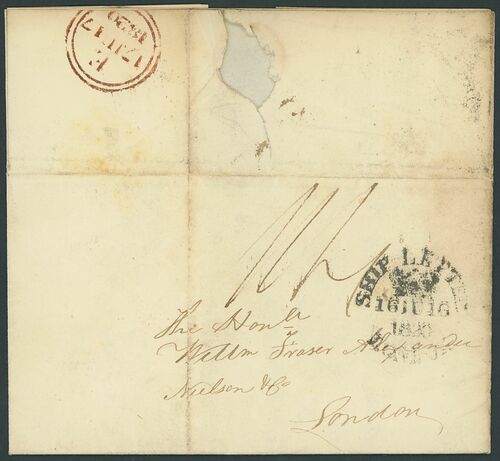 F
17 JU 17
1820
SHIP LETT
16 JU 16
The Honle
Willm Fraser Alexander
Neilson & Co
London